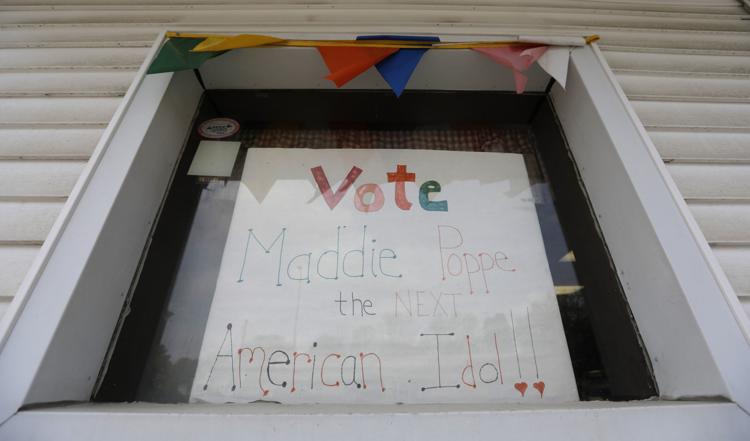 Vote
Maddie Poppe
the NEXT
American Idol!!